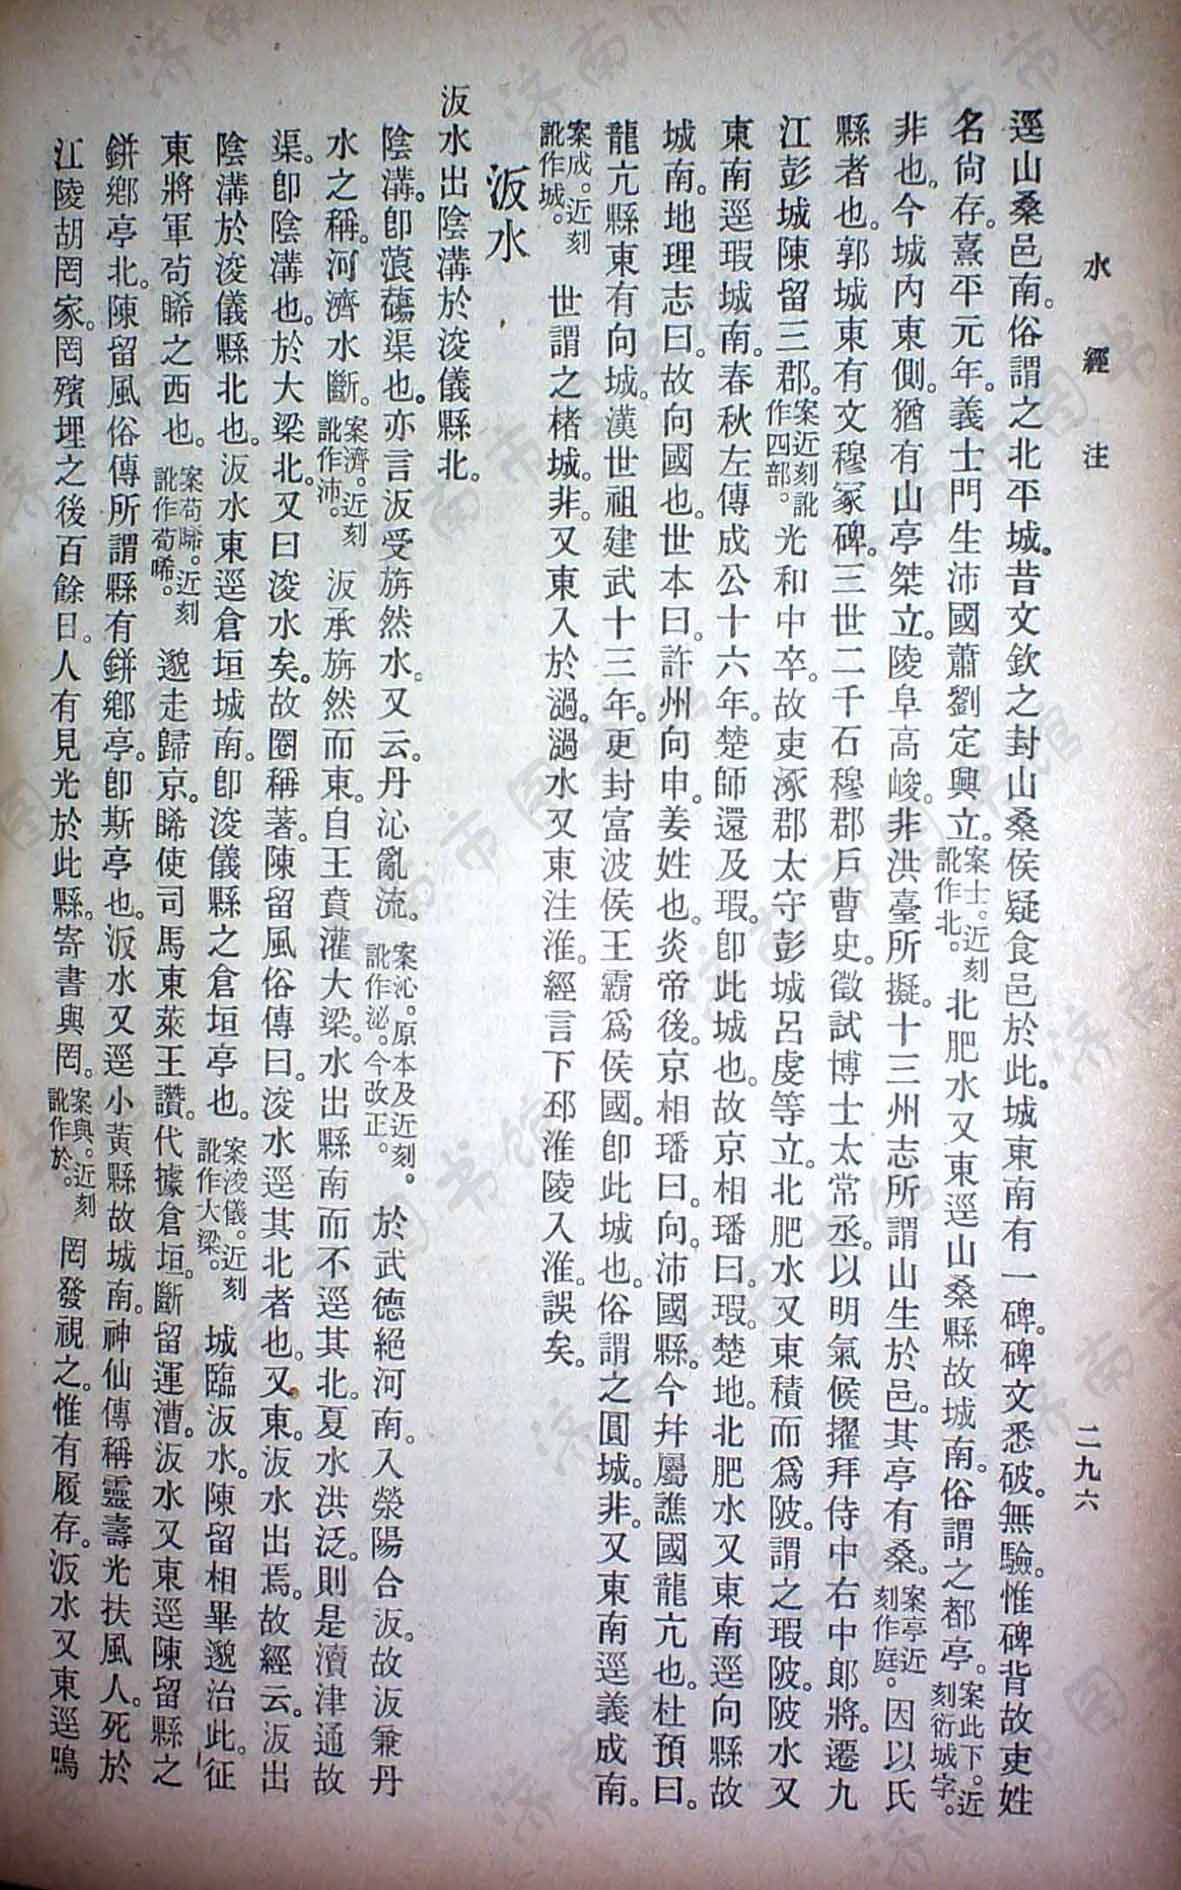 水經注
二九六
逕山桑邑南。俗謂之北平城。昔文欽之封山桑侯疑食邑於此。城東南有一碑。碑文悉破。無驗。惟碑背故吏姓
名尙存。熹平元年。義士門生沛國蕭劉定興立。案士。近刻訛作北。北肥水又東逕山桑縣故城南。俗謂之都亭。案此下。近刻衍城字。
非也。今城內東側。猶有山亭桀立。陵阜高峻。非洪臺所擬。十三州志所謂山生於邑。其亭有桑。案亭近刻作庭。因以氏
縣者也。郭城東有文穆冢碑。三世二千石穆郡戶曹史。徵試博士太常丞。以明氣候擢拜侍中右中郎將。遷九
江彭城陳留三郡。案近刻訛作四部。光和中卒。故吏涿郡太守彭城呂虔等立。北肥水又東積而爲陂。謂之瑕陂。陂水又
東南逕瑕城南。春秋左傳成公十六年。楚師還及瑕。卽此城也。故京相璠曰。瑕。楚地。北肥水又東南逕向縣故
城南。地理志曰。故向國也。世本曰。許州向申。姜姓也。炎帝後。京相璠曰。向。沛國縣。今幷屬譙國龍亢也。杜預曰。
龍亢縣東有向城。漢世祖建武十三年。更封富波侯王霸爲侯國。卽此城也。俗謂之圓城。非。又東南逕義成南。
案成。近刻訛作城。世謂之楮城。非。又東入於濄。濄水又東注淮。經言下邳淮陵入淮。誤矣。
汳水
汳水出陰溝於浚儀縣北。
陰溝。卽蒗䕞渠也。亦言汳受旃然水。又云。丹沁亂流。案沁。原本及近刻。訛作泌。今改正。於武德絕河南。入滎陽合汳。故汳兼丹
水之稱。河濟水斷。案濟。近刻訛作沛。汳承旃然而東。自王賁灌大梁。水出縣南而不逕其北。夏水洪泛。則是瀆津通故
渠。卽陰溝也。於大梁北。又曰浚水矣。故圈稱著。陳留風俗傳曰。浚水逕其北者也。又東。汳水出焉。故經云。汳出
陰溝於浚儀縣北也。汳水東逕倉垣城南。卽浚儀縣之倉垣亭也。案浚儀。近刻訛作大梁。城臨汳水。陳留相畢邈治此。征
東將軍苟晞之西也。案苟晞。近刻訛作荀晞。邈走歸京。晞使司馬東萊王讚。代據倉垣。斷留運漕。汳水又東逕陳留縣之
鉼鄉亭北。陳留風俗傳所謂縣有鉼鄉亭。卽斯亭也。汳水又逕小黃縣故城南。神仙傳稱靈壽光扶風人。死於
江陵胡罔家。罔殯埋之後百餘日。人有見光於此縣。寄書與罔。案與。近刻訛作於。罔發視之。惟有履存。汳水又東逕鳴